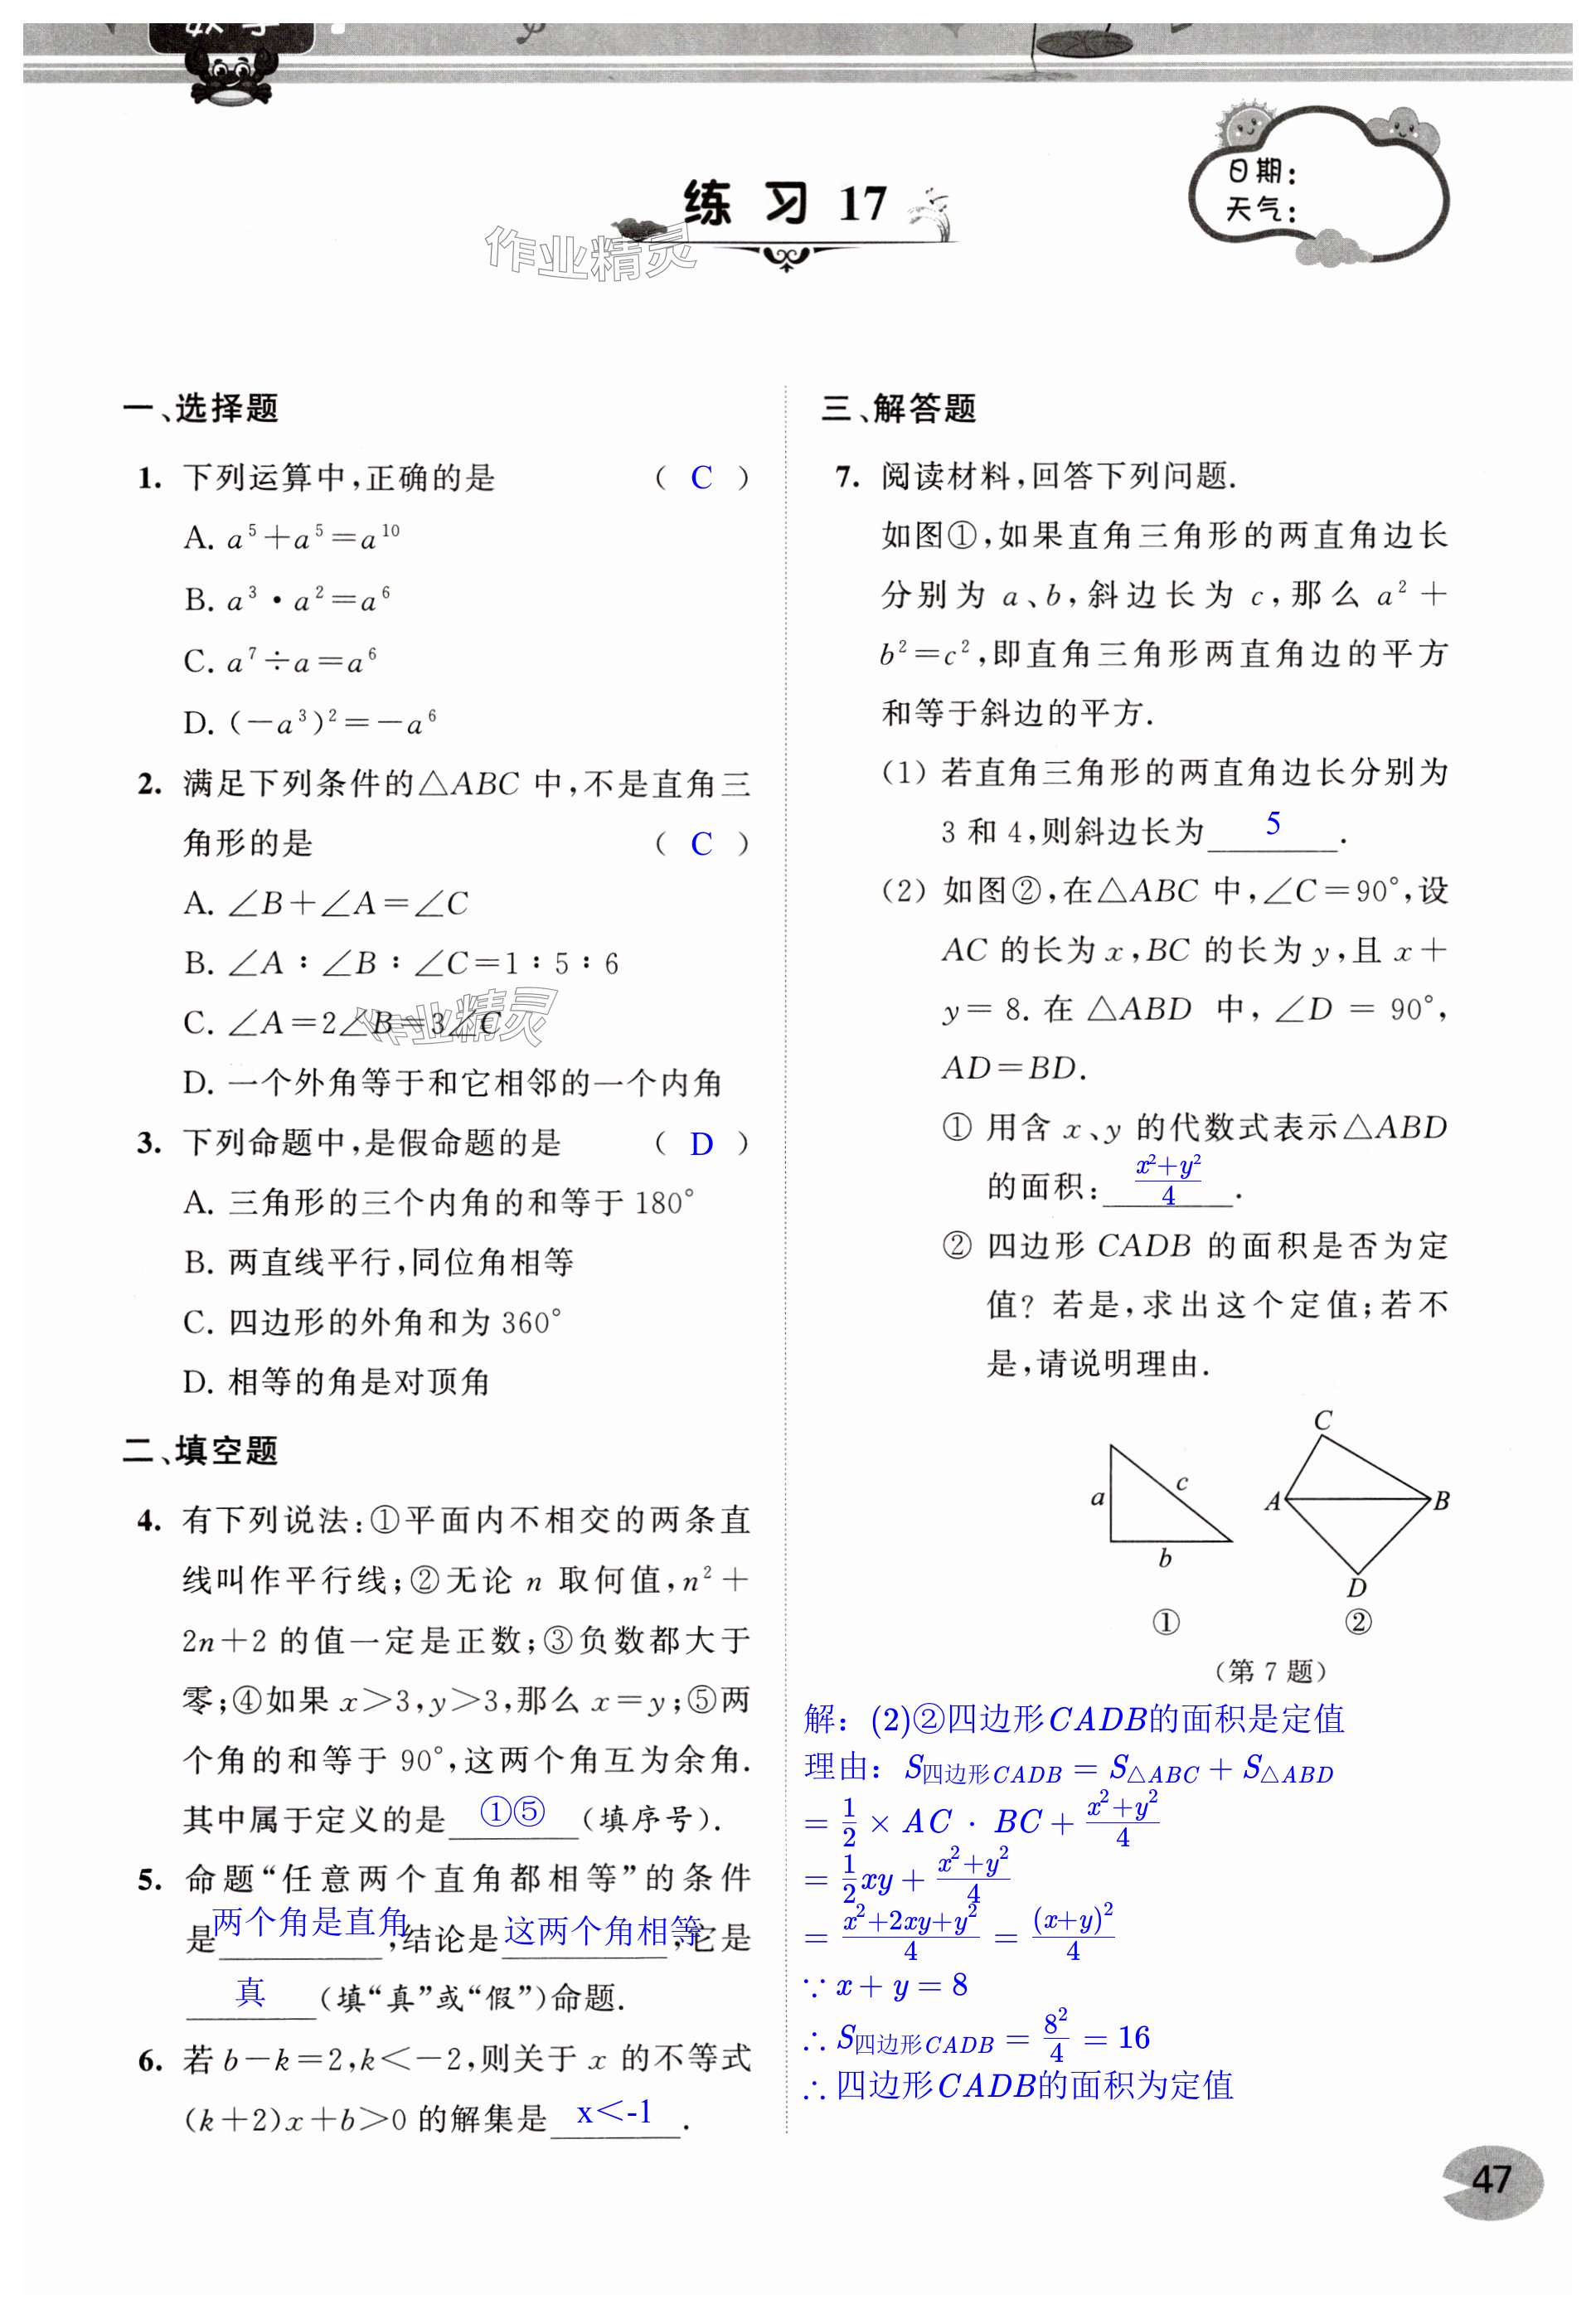 数学
练 习 17
日期:
天气:
作业精灵
一、选择题
1. 下列运算中,正确的是 ( C )
A. a⁵+a⁵=a¹⁰
B. a³·a²=a⁶
C. a⁷÷a=a⁶
D. (-a³)²=-a⁶
2. 满足下列条件的△ABC 中,不是直角三
角形的是 ( C )
A. ∠B+∠A=∠C
B. ∠A:∠B:∠C=1:5:6
C. ∠A=2∠B=3∠C
作业精灵
D. 一个外角等于和它相邻的一个内角
3. 下列命题中,是假命题的是 ( D )
A. 三角形的三个内角的和等于 180°
B. 两直线平行,同位角相等
C. 四边形的外角和为 360°
D. 相等的角是对顶角
二、填空题
4. 有下列说法:①平面内不相交的两条直
线叫作平行线;②无论 n 取何值,n²+
2n+2 的值一定是正数;③负数都大于
零;④如果 x>3,y>3,那么 x=y;⑤两
个角的和等于 90°,这两个角互为余角.
其中属于定义的是 ①⑤ (填序号).
5. 命题“任意两个直角都相等”的条件
是 两个角是直角 ,结论是 这两个角相等 ,它是
真 (填“真”或“假”)命题.
6. 若 b-k=2,k<-2,则关于 x 的不等式
(k+2)x+b>0 的解集是 x<-1 .
三、解答题
7. 阅读材料,回答下列问题.
如图①,如果直角三角形的两直角边长
分别为 a、b,斜边长为 c,那么 a²+
b²=c²,即直角三角形两直角边的平方
和等于斜边的平方.
(1) 若直角三角形的两直角边长分别为
3 和 4,则斜边长为 5 .
(2) 如图②,在△ABC 中,∠C=90°,设
AC 的长为 x,BC 的长为 y,且 x+
y=8. 在△ABD 中,∠D=90°,
AD=BD.
① 用含 x、y 的代数式表示△ABD
的面积: (x²+y²)/4 .
② 四边形 CADB 的面积是否为定
值? 若是,求出这个定值;若不
是,请说明理由.
C
a c A B
b
D
① ②
(第 7 题)
解: (2)②四边形CADB的面积是定值
理由: S四边形CADB = S△ABC + S△ABD
= 1/2 × AC · BC + (x²+y²)/4
= 1/2xy + (x²+y²)/4
= (x²+2xy+y²)/4 = (x+y)²/4
∵ x + y = 8
∴ S四边形CADB = 8²/4 = 16
∴ 四边形CADB的面积为定值
47